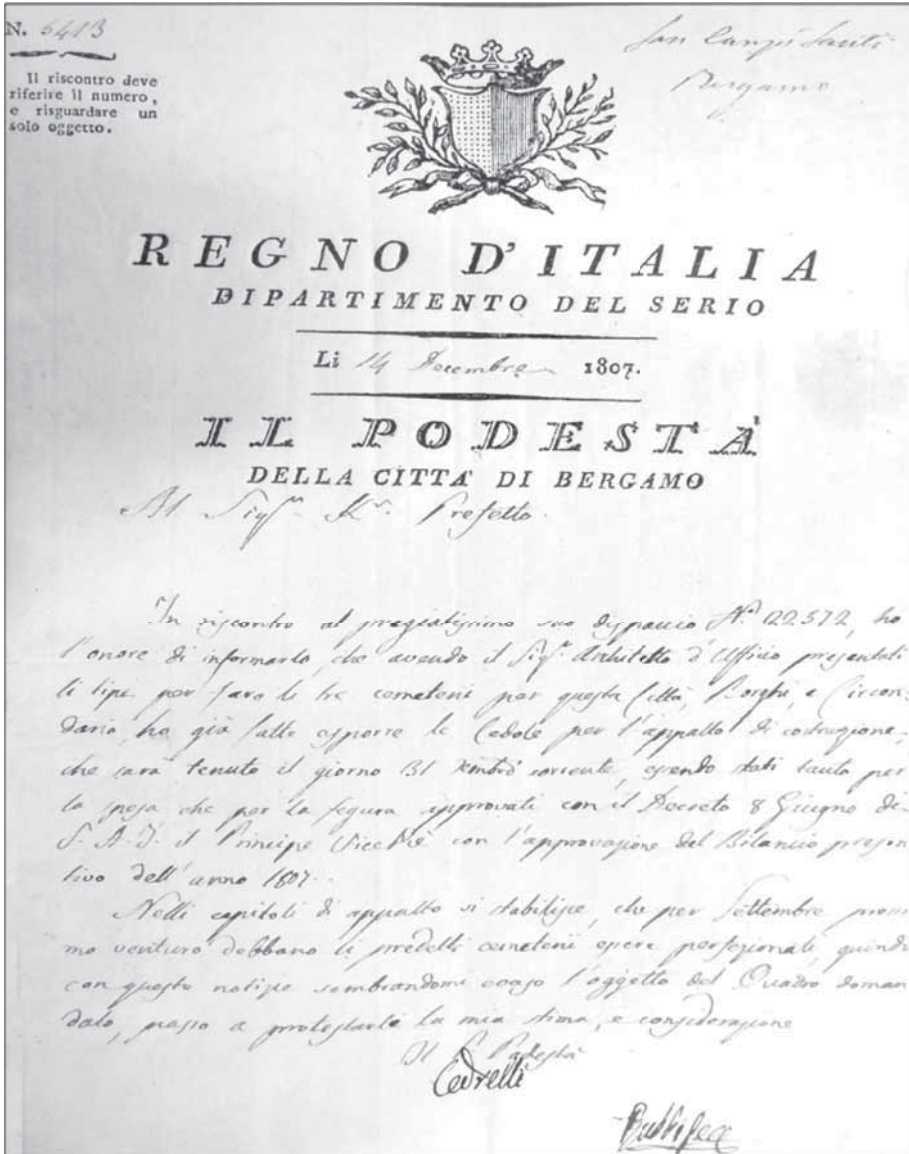 N. 5413
Il riscontro deve
riferire il numero,
e risguardare un
solo oggetto.
Bergamo
REGNO D'ITALIA
DIPARTIMENTO DEL SERIO
Li 14 Decembre 1807.
IL PODESTÀ
DELLA CITTÀ DI BERGAMO
Al Sigr. Kr. Prefetto.
In riscontro al pregiatissimo suo dispaccio N.° 22572, ho
l'onore di informarlo, che avendo il Sigr. Architetto d'Ufficio presentati
li tipi per fare li tre cemeterii per questa Città, Borghi, e Circon-
dario, ho già fatto esporre le Cedole per l'appalto di costruzione,
che sarà tenuto il giorno 31 corrente, essendo stati tanto per
la spesa che per la figura approvati con il Decreto 8 Giugno di
S. A. I. il Principe Vice Rè con l'approvazione del Bilancio preson
tivo dell'anno 1807.
Nelli capitoli di appalto si stabilisce, che per Settembre prossi
mo venturo debbano li predetti cemeterii essere perfezionati, quindi
con queste notizie sembrandomi evaso l'oggetto del Quadro doman
dato, passo a protestarle la mia stima, e considerazione
Il Podestà